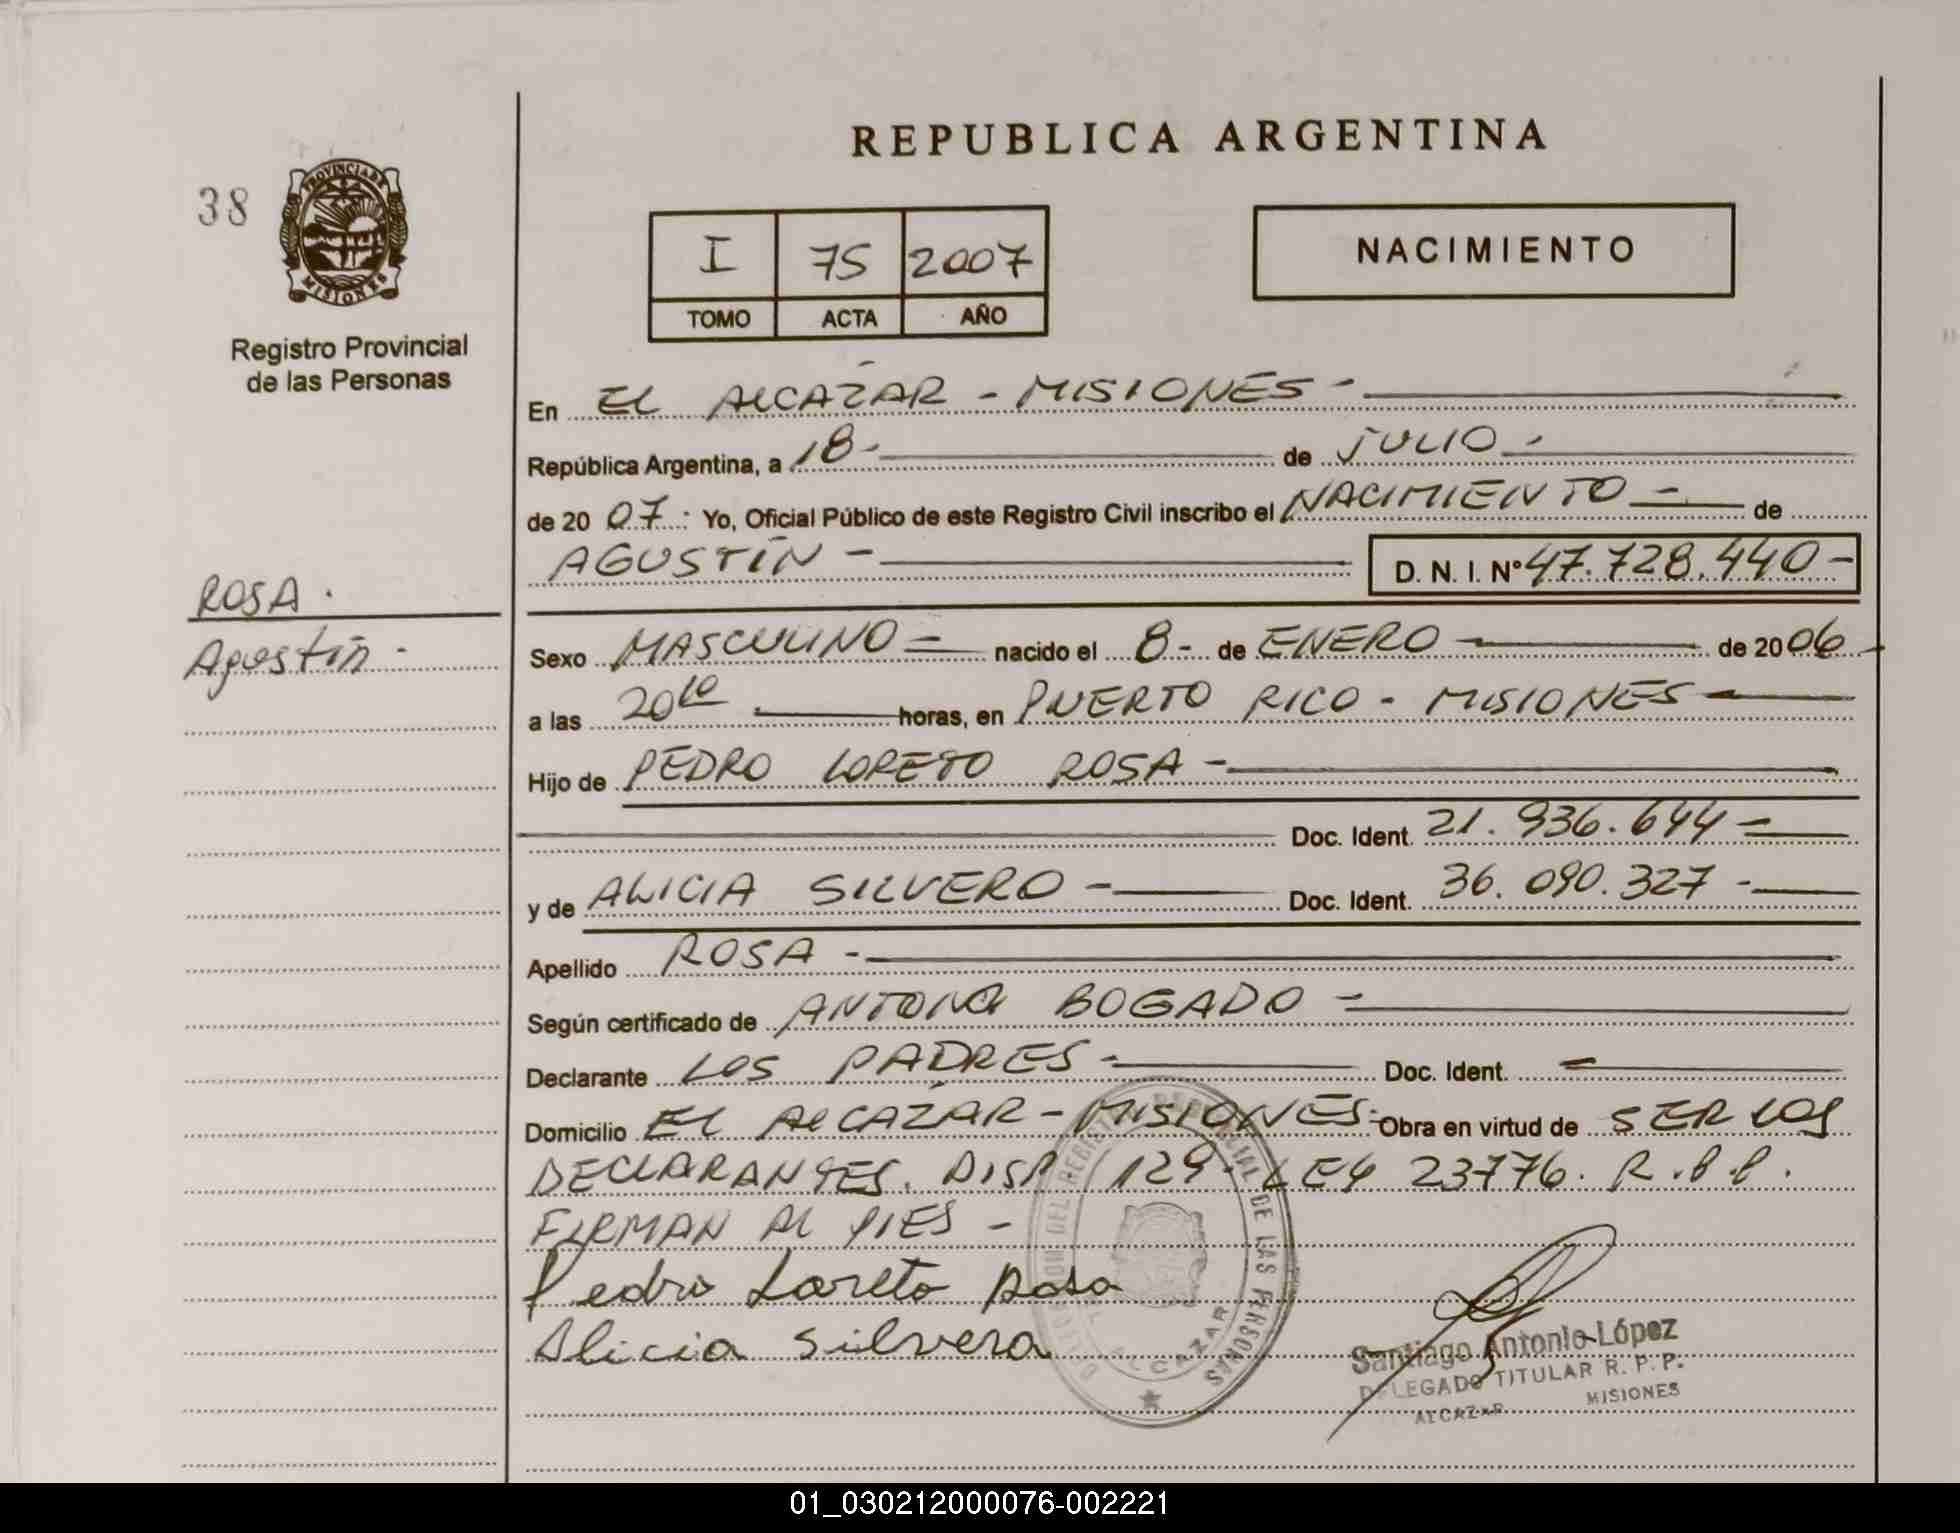 REPUBLICA ARGENTINA
38
PROVINCIA DE
MISIONES
Registro Provincial
de las Personas
I 75 2007
TOMO ACTA AÑO
NACIMIENTO
En EL ALCAZAR - MISIONES -
República Argentina, a 18 - de JULIO -
de 20 07 : Yo, Oficial Público de este Registro Civil inscribo el NACIMIENTO - de
AGUSTÍN - D. N. I. N° 47.728.440 -
ROSA .
Agustín -
Sexo MASCULINO - nacido el 8 - de ENERO - de 20 06 -
a las 20 10 horas, en PUERTO RICO - MISIONES -
Hijo de PEDRO LORETO ROSA -
Doc. Ident. 21.936.644 -
y de ALICIA SILVERO - Doc. Ident. 36.090.327 -
Apellido ROSA -
Según certificado de ANTONA BOGADO -
Declarante LOS PADRES - Doc. Ident. -
Domicilio EL ALCAZAR - MISIONES - Obra en virtud de SER LOS
DECLARANTES. DISP 129 - LEY 23776. R.P.P.
FIRMAN AL PIES -
Pedro Loreto Rosa
Alicia Silvero
DEL REGISTRO PROVINCIAL DE LAS PERSONAS
ALCAZAR
Santiago Antonio López
DELEGADO TITULAR R. P. P.
ALCAZAR MISIONES
01_030212000076-002221